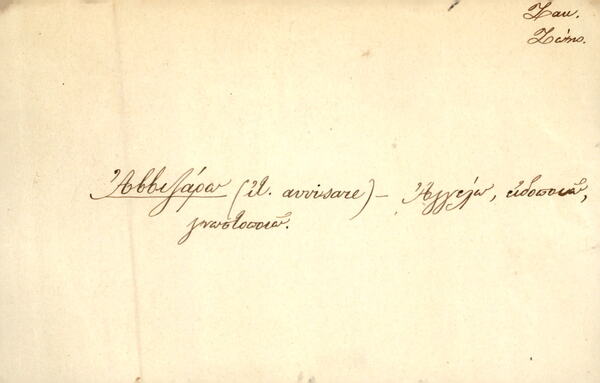 Ζακ.
Ζώης.
Ἀββιζάρω (ἰτ. avvisare) – Ἀγγέλω, εἰδοποιῶ,
γνωστοποιῶ.